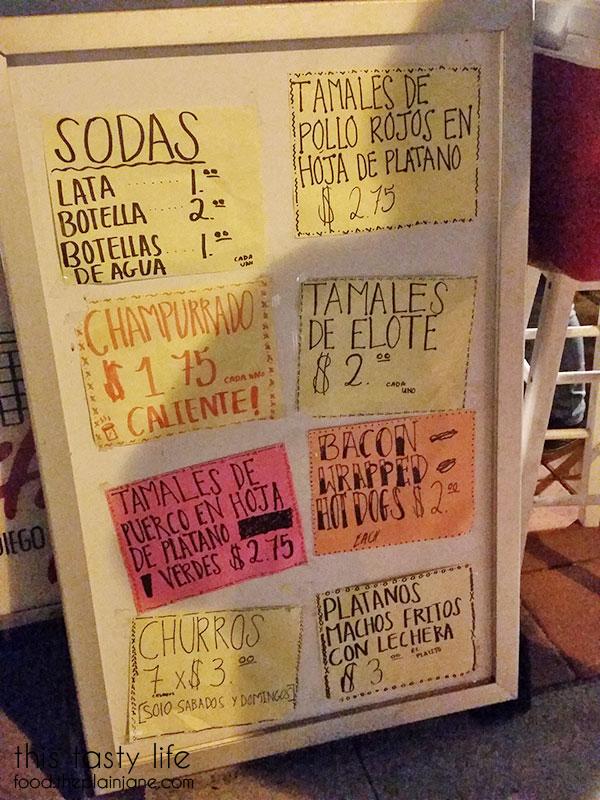 SODAS
LATA ........ 1.00
BOTELLA ...... 2.00
BOTELLAS DE AGUA 1.00
CADA UNO
TAMALES DE
POLLO ROJOS EN
HOJA DE PLATANO
$ 2.75
CHAMPURRADO
$ 1.75 CADA UNO
CALIENTE!
TAMALES
DE ELOTE
$ 2.00 CADA UNO
TAMALES DE
PUERCO EN HOJA
DE PLATANO
VERDES $2.75
BACON
WRAPPED
HOT DOGS $2.00
EACH
CHURROS
7 x $3.00
[SOLO SABADOS Y DOMINGOS]
PLATANOS
MACHOS FRITOS
CON LECHERA
$ 3.00 EL PLATITO
DIEGO
this tasty life
food.theplainjane.com